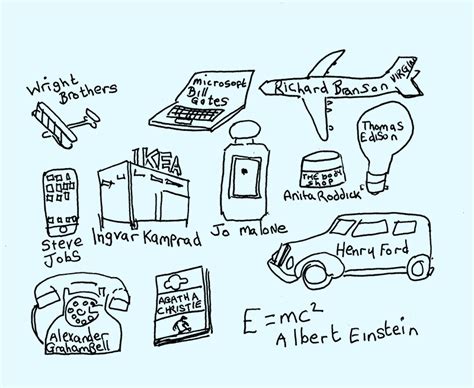 Wright
Brothers
microsoft
Bill
Gates
Richard Branson
VIRGIN
Thomas
Edison
IKEA
THE BODY
SHOP
Anita Roddick
Steve
Jobs
Ingvar Kamprad
Jo malone
Henry Ford
Alexander
GrahamBell
AGATHA
CHRISTIE
E=mc²
Albert Einstein